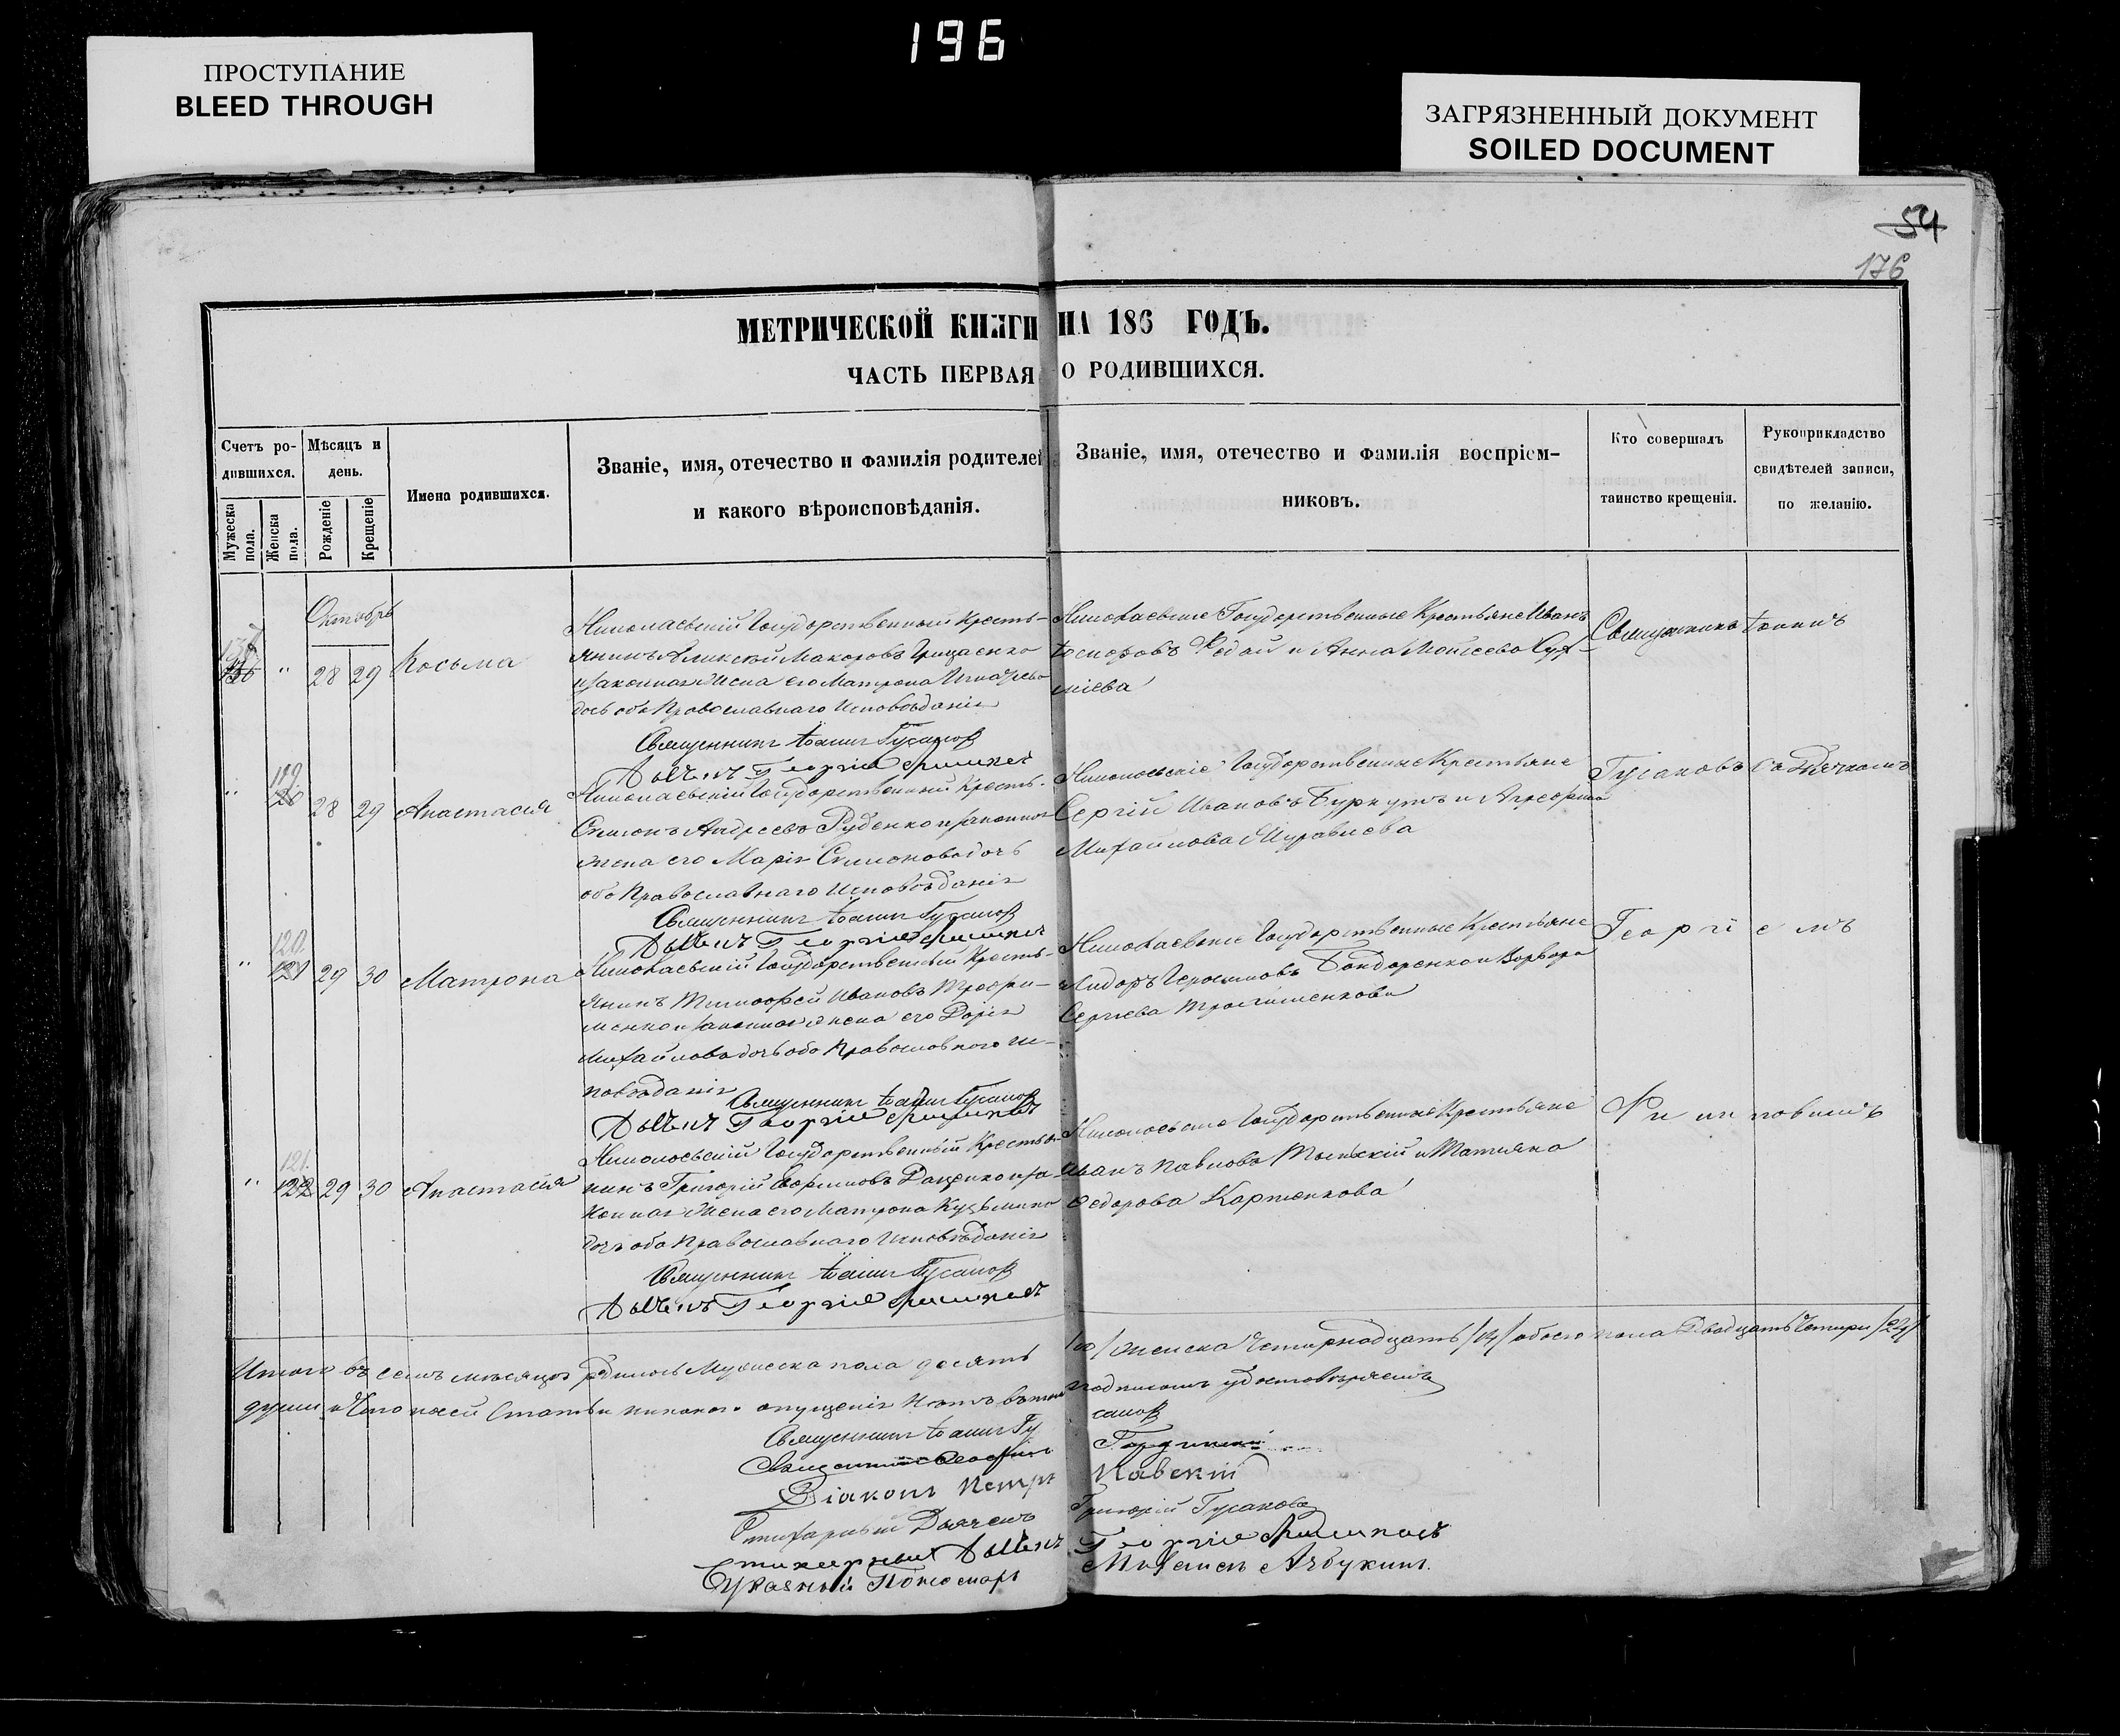 196
ПРОСТУПАНИЕ
BLEED THROUGH
ЗАГРЯЗНЕННЫЙ ДОКУМЕНТ
SOILED DOCUMENT
54
176
МЕТРИЧЕСКОЙ КНИГИ НА 186 ГОДЪ.
ЧАСТЬ ПЕРВАЯ О РОДИВШИХСЯ.
Счетъ ро-
дившихся.
Мужеска
пола.
Женска
пола.
Мѣсяцъ и
день.
Рожденіе
Крещеніе
Имена родившихся.
Званіе, имя, отечество и фамилія родителей
и какого вѣроисповѣданія.
Званіе, имя, отечество и фамилія воспріем-
никовъ.
Кто совершалъ
таинство крещенія.
Рукоприкладство
свидѣтелей записи,
по желанію.
Октябрь
" 28 29 Косьма
Николаевскій Государственный Кресть-
янинъ Алексѣй Макаровъ Грищенко
и законная жена его Матрона Игнатьева
дочь оба Православнаго Исповѣданія
Священникъ Іоаннъ Гусаковъ
Дьячекъ Георгій
Николаевскіе Государственные Крестьяне Иванъ
Ѳедай и Анна Моисеева
Священникъ Іоаннъ
" 119. 120 28 29 Анастасія
Николаевскій Государственный Кресть-
Симонъ Андреевъ Руденко и законная
жена его Марія Симонова дочь
оба Православнаго Исповѣданія
Священникъ Іоаннъ Гусаковъ
Дьячекъ Георгій
Николаевскіе Государственные Крестьяне
Сергій Ивановъ Буркутъ и
Михайлова Муравьева
Гусаковъ съ Дьячкомъ
" 120. 121 29 30 Матрона
Николаевскій Государственный Кресть-
янинъ Тимофей Ивановъ Трофи-
менко и законная жена его Дарія
Михайлова дочь оба Православного Ис-
повѣданія
Священникъ Іоаннъ Гусаковъ
Дьячекъ Георгій
Николаевскіе Государственные Крестьяне
Герасимовъ Бондаренко и Варвара
Сергіева
Георгіемъ
" 121. 122 29 30 Анастасія
Николаевскій Государственный Крестья-
нинъ Григорій Даценко и за-
конная жена его Матрона Кузьмина
дочь оба Православнаго Исповѣданія
Священникъ Іоаннъ Гусаковъ
Дьячекъ Георгій
Николаевскіе Государственные Крестьяне
Иванъ Павловъ и Татьяна
Ѳедорова Карпенкова
Итого въ семъ мѣсяцѣ родилось Мужеска пола десять /10/ женска Четырнадцать /14/ обоего пола Двадцать Четыре /24/
души и Что по сей Статьи никакого опущенія нѣтъ въ томъ подписомъ удостовѣряемъ
Священникъ Іоаннъ Гусаковъ
Священникъ
Діаконъ Петръ
Стихарный Дьячекъ Григорій Гусаковъ
Стихарный Дьячекъ Георгій
Указный Пономарь Азбукинъ.